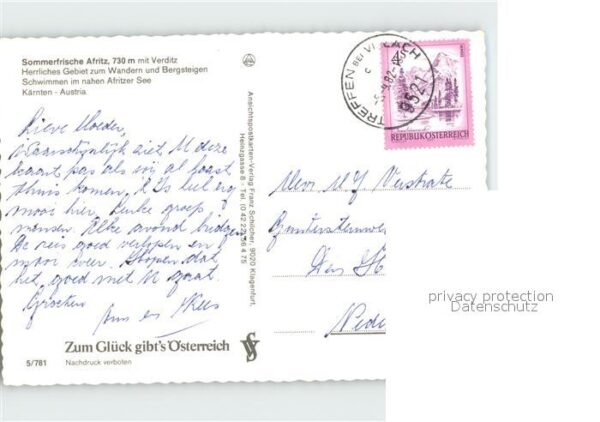 Sommerfrische Afritz, 730 m mit Verditz
Herrliches Gebiet zum Wandern und Bergsteigen
Schwimmen im nahen Afritzer See
Kärnten - Austria.
Lieve Moeder,
Waarschijnlijk ziet U deze
kaart pas als wij al haast
thuis komen, 't Is heel erg
mooi hier, Leuke groep
mensen. Elke avond bridgen
De reis goed verlopen en
mooi weer. Hopen dat
het goed met U gaat.
Groeten
en Kees
Ansichtspostkarten-Verlag Franz Schilcher, 9020 Klagenfurt,
Heinzgasse 6 - Tel. (0 42 22) 56 4 75
TREFFEN BEI VILLACH
9521
REPUBLIK ÖSTERREICH
Mevr Verstrate
Den H
Nede
privacy protection
Datenschutz
Zum Glück gibt's Österreich
5/781
Nachdruck verboten